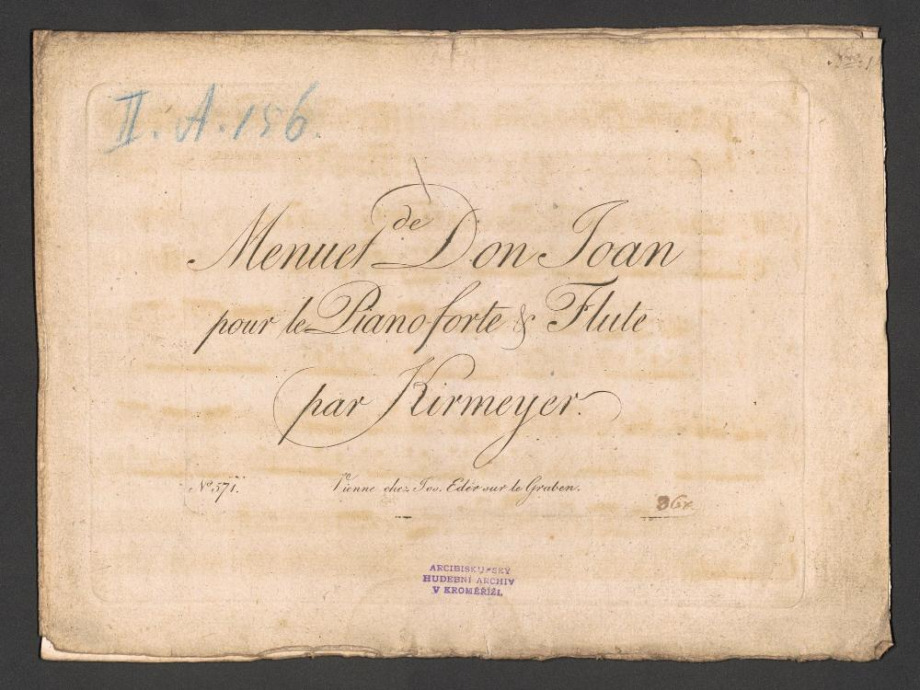 II. A. 156.
Menuet de Don Joan
pour le Piano-forte & Flute
par Kirmeyer.
Nº 571.
Vienne chez Jos. Eder sur le Graben.
ARCIBISKUPSKÝ
HUDEBNÍ ARCHIV
V KROMĚŘÍŽI.